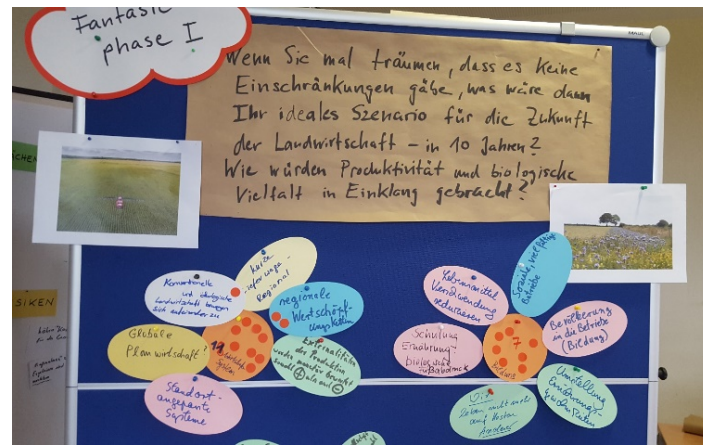 Fantasie
phase I
Wenn Sie mal träumen, dass es keine
Einschränkungen gäbe, was wäre dann
Ihr ideales Szenario für die Zukunft
der Landwirtschaft – in 10 Jahren?
Wie würden Produktivität und biologische
Vielfalt in Einklang gebracht?
CHEN
SIKEN
Konventionelle
und ökologische
Landwirtschaft bewegen
sich aufeinander zu
Kurze
Lieferwege
Regional
regionale
Wertschöpf-
ungsketten
Globale
Planwirtschaft?
11
Externalitäten
der Produktion
werden
Standort-
angepasste
Systeme
Lebensmittel
Verschwendung
reduzieren
Soziale, vielfältige
Betriebe
Schulung
Ernährung-
biologische
Fußabdruck
7
Bildung
Bevölkerung
in die Betriebe
(Bildung)
Wir
leben nicht mehr
auf Kosten
anderer
Umstellung
Ernährungs-
gewohnheiten